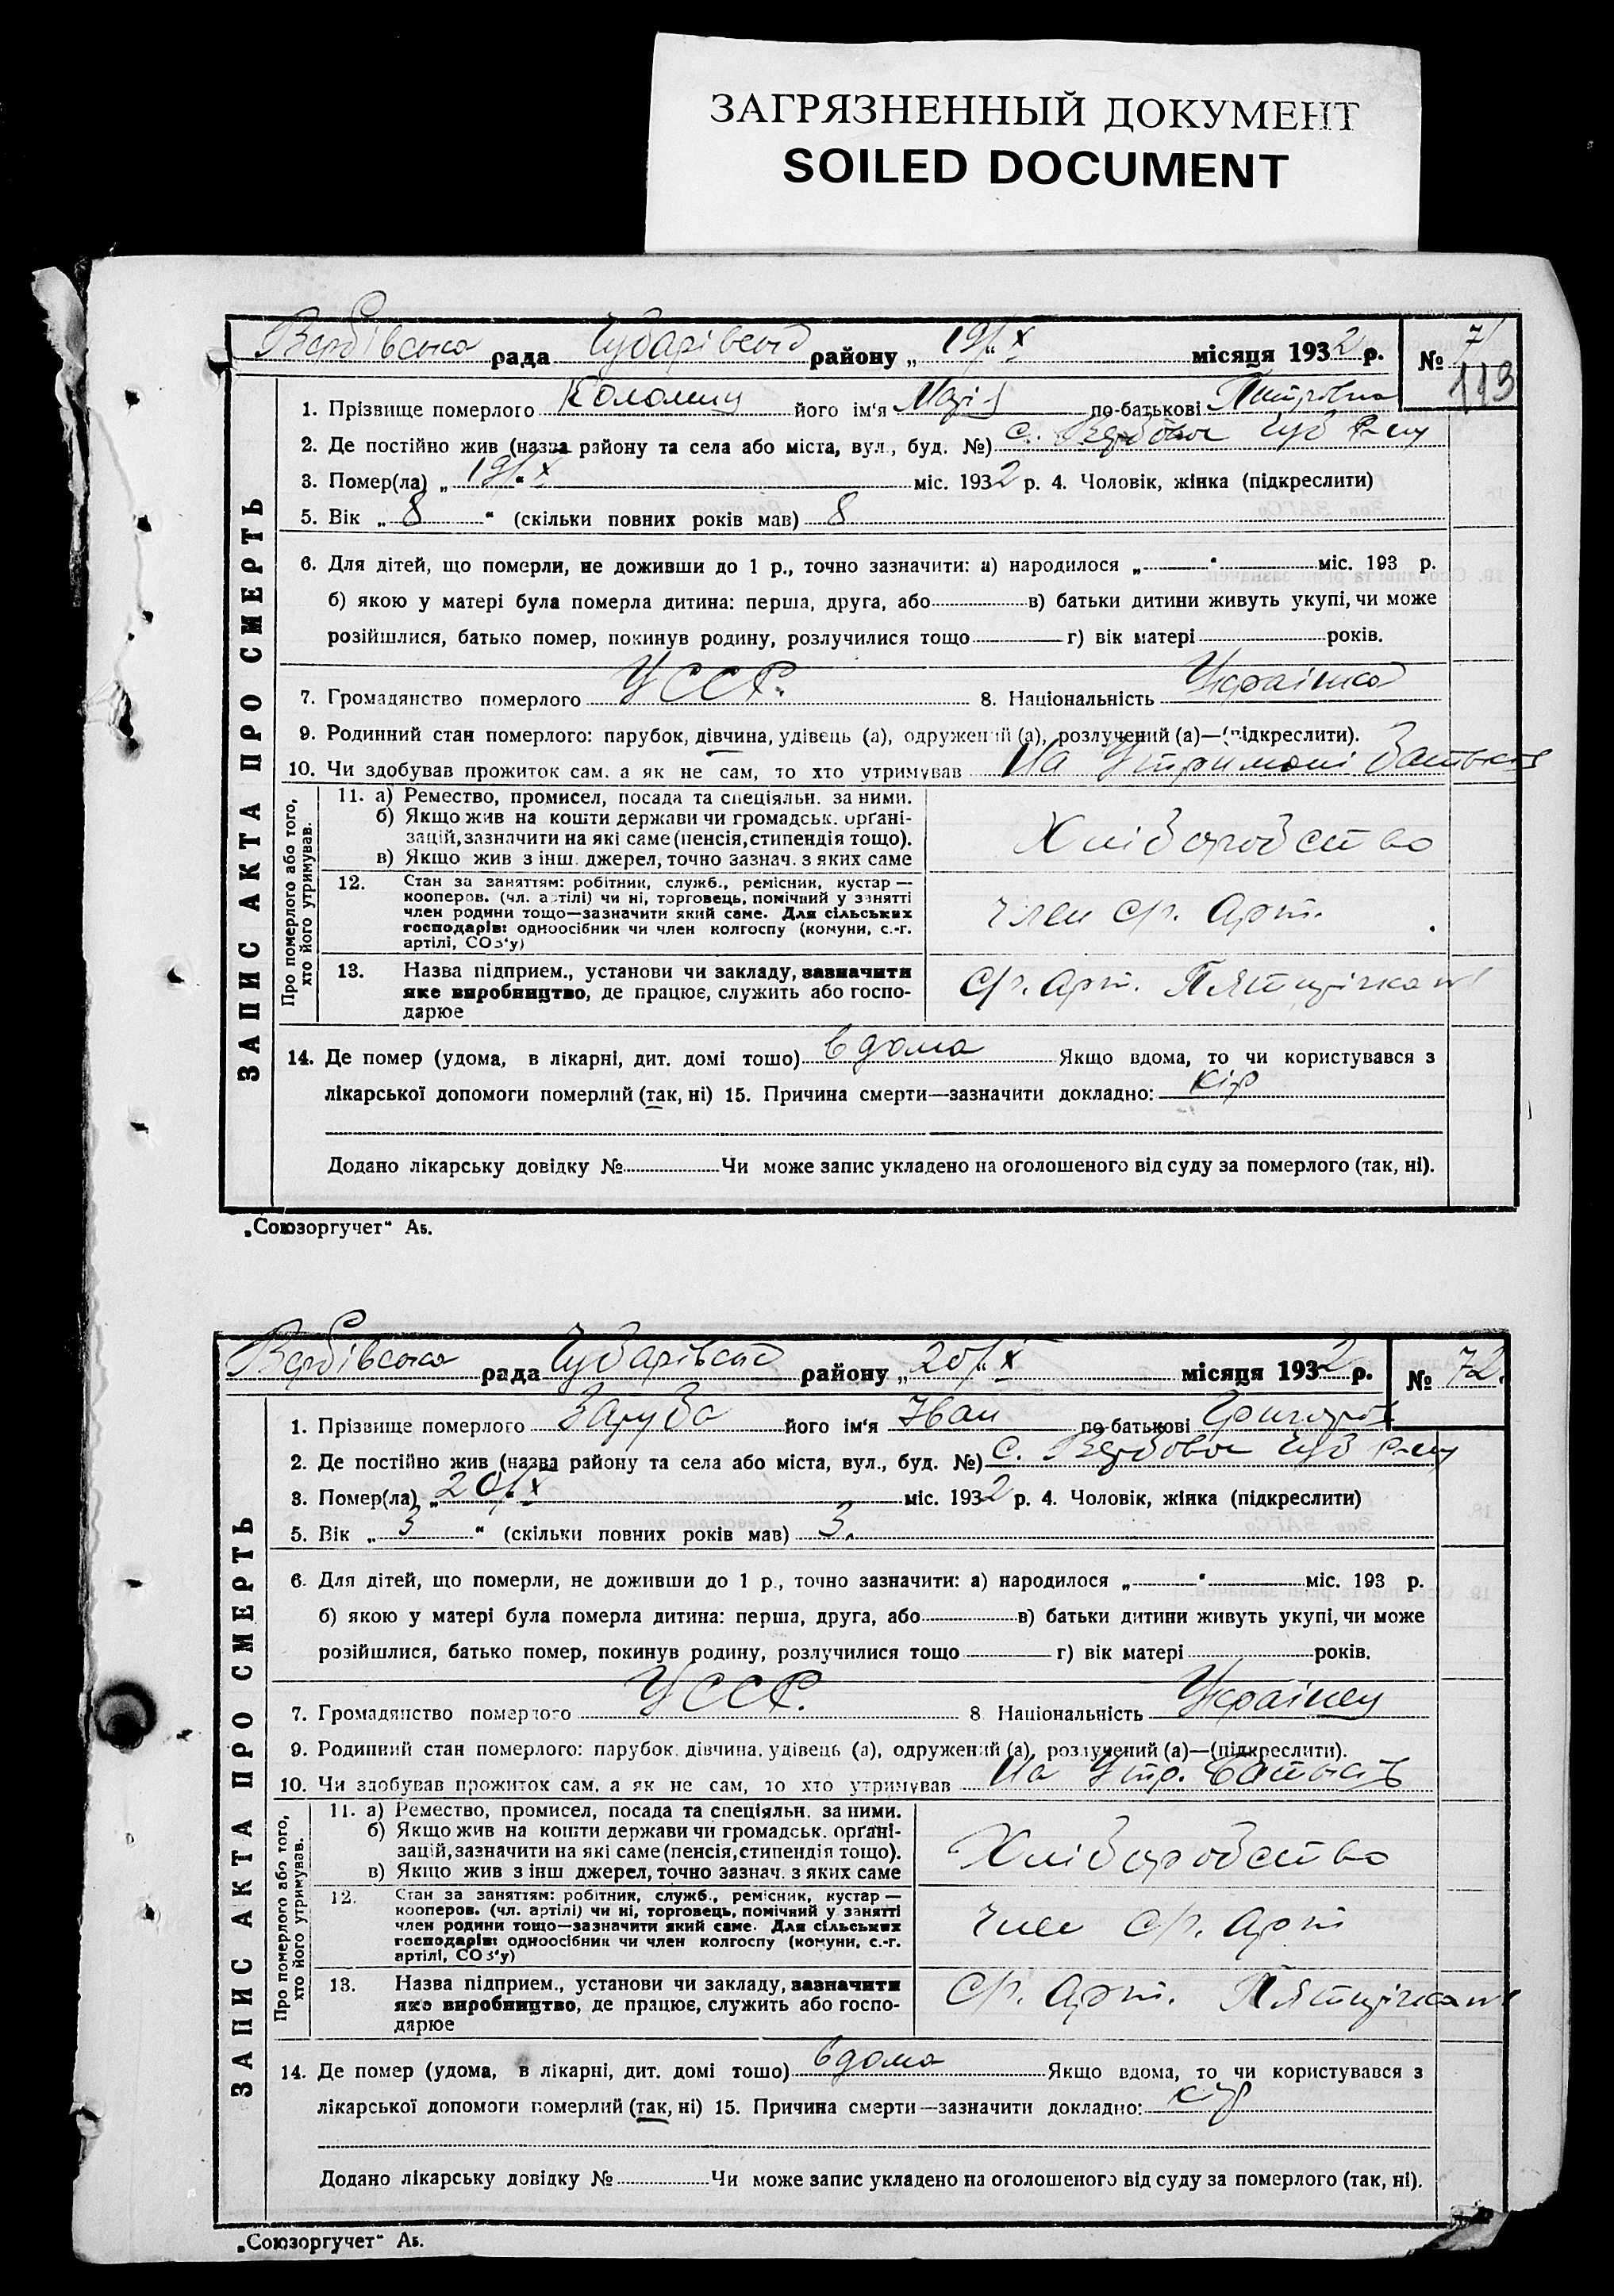 ЗАГРЯЗНЕННЫЙ ДОКУМЕНТ
SOILED DOCUMENT
Вербівська рада Чубарівськ району „ 19/X місяця 1932 р. № 71
113
1. Прізвище померлого Коломиц його ім'я Марія по-батькові Петровна
2. Де постійно жив (назва району та села або міста, вул., буд. №) с. Вербове Чуб р-ну
3. Помер(ла) „ 19/X міс. 1932 р. 4. Чоловік, жінка (підкреслити)
5. Вік „ 8 “ (скільки повних років мав) 8
6. Для дітей, що померли, не доживши до 1 р., точно зазначити: а) народилося „ “ міс. 193 р.
б) якою у матері була померла дитина: перша, друга, або в) батьки дитини живуть укупі, чи може
розійшлися, батько помер, покинув родину, розлучилися тощо г) вік матері років.
7. Громадянство померлого УССР. 8. Національність Українка
9. Родинний стан померлого: парубок, дівчина, удівець (а), одружений (а), розлучений (а)—(підкреслити).
10. Чи здобував прожиток сам, а як не сам, то хто утримував На Утримані батьків
ЗАПИС АКТА ПРО СМЕРТЬ
Про померлого або того, хто його утримував.
11. а) Ремество, промисел, посада та спеціяльн. за ними.
б) Якщо жив на кошти держави чи громадськ. орґані-
зацій, зазначити на які саме (пенсія, стипендія тощо).
в) Якщо жив з інш. джерел, точно зазнач. з яких саме
Хліборобство
12. Стан за заняттям: робітник, служб., ремісник, кустар —
кооперов. (чл. артілі) чи ні, торговець, помічний у занятті
член родини тощо—зазначити який саме. Для сільських
господарів: одноосібник чи член колгоспу (комуни, с.-г.
артілі, СОЗ'у)
член с/г. арт.
13. Назва підприєм., установи чи закладу, зазначити
яке виробництво, де працює, служить або госпо-
дарює
С/г. арт. Пятирічка
14. Де помер (удома, в лікарні, дит. домі тошо) вдома Якщо вдома, то чи користувався з
лікарської допомоги померлий (так, ні) 15. Причина смерти—зазначити докладно: кір
Додано лікарську довідку № Чи може запис укладено на оголошеного від суду за померлого (так, ні).
„Союзоргучет“ А5.
Вербівська рада Чубарівськ району „ 20/X місяця 1932 р. № 72.
1. Прізвище померлого Заруба його ім'я Іван по-батькові Григоров
2. Де постійно жив (назва району та села або міста, вул., буд. №) с. Вербове Чуб р-ну
3. Помер(ла) „ 20/X міс. 1932 р. 4. Чоловік, жінка (підкреслити)
5. Вік „ 3 “ (скільки повних років мав) 3.
6. Для дітей, що померли, не доживши до 1 р., точно зазначити: а) народилося „ “ міс. 193 р.
б) якою у матері була померла дитина: перша, друга, або в) батьки дитини живуть укупі, чи може
розійшлися, батько помер, покинув родину, розлучилися тощо г) вік матері років.
7. Громадянство померлого УССР. 8 Національність Українец
9. Родинний стан померлого: парубок, дівчина, удівець (а), одружений (а), розлучений (а)—(підкреслити).
10. Чи здобував прожиток сам, а як не сам, то хто утримував На Утр. батьків
ЗАПИС АКТА ПРО СМЕРТЬ
Про померлого або того, хто його утримував.
11. а) Ремество, промисел, посада та спеціяльн. за ними.
б) Якщо жив на кошти держави чи громадськ. орґані-
зацій, зазначити на які саме (пенсія, стипендія тощо).
в) Якщо жив з інш джерел, точно зазнач. з яких саме
Хліборобство
12. Стан за заняттям: робітник, служб., ремісник, кустар —
кооперов. (чл. артілі) чи ні, торговець, помічний у занятті
член родини тощо—зазначити який саме. Для сільських
господарів: одноосібник чи член колгоспу (комуни, с.-г.
артілі, СОЗ'у)
член с/г. арт
13. Назва підприєм., установи чи закладу, зазначити
яке виробництво, де працює, служить або госпо-
дарює
С/г. арт. Пятирічка
14. Де помер (удома, в лікарні, дит. домі тошо) вдома Якщо вдома, то чи користувався з
лікарської допомоги померлий (так, ні) 15. Причина смерти—зазначити докладно: кір
Додано лікарську довідку № Чи може запис укладено на оголошеного від суду за померлого (так, ні).
„Союзоргучет“ А5.